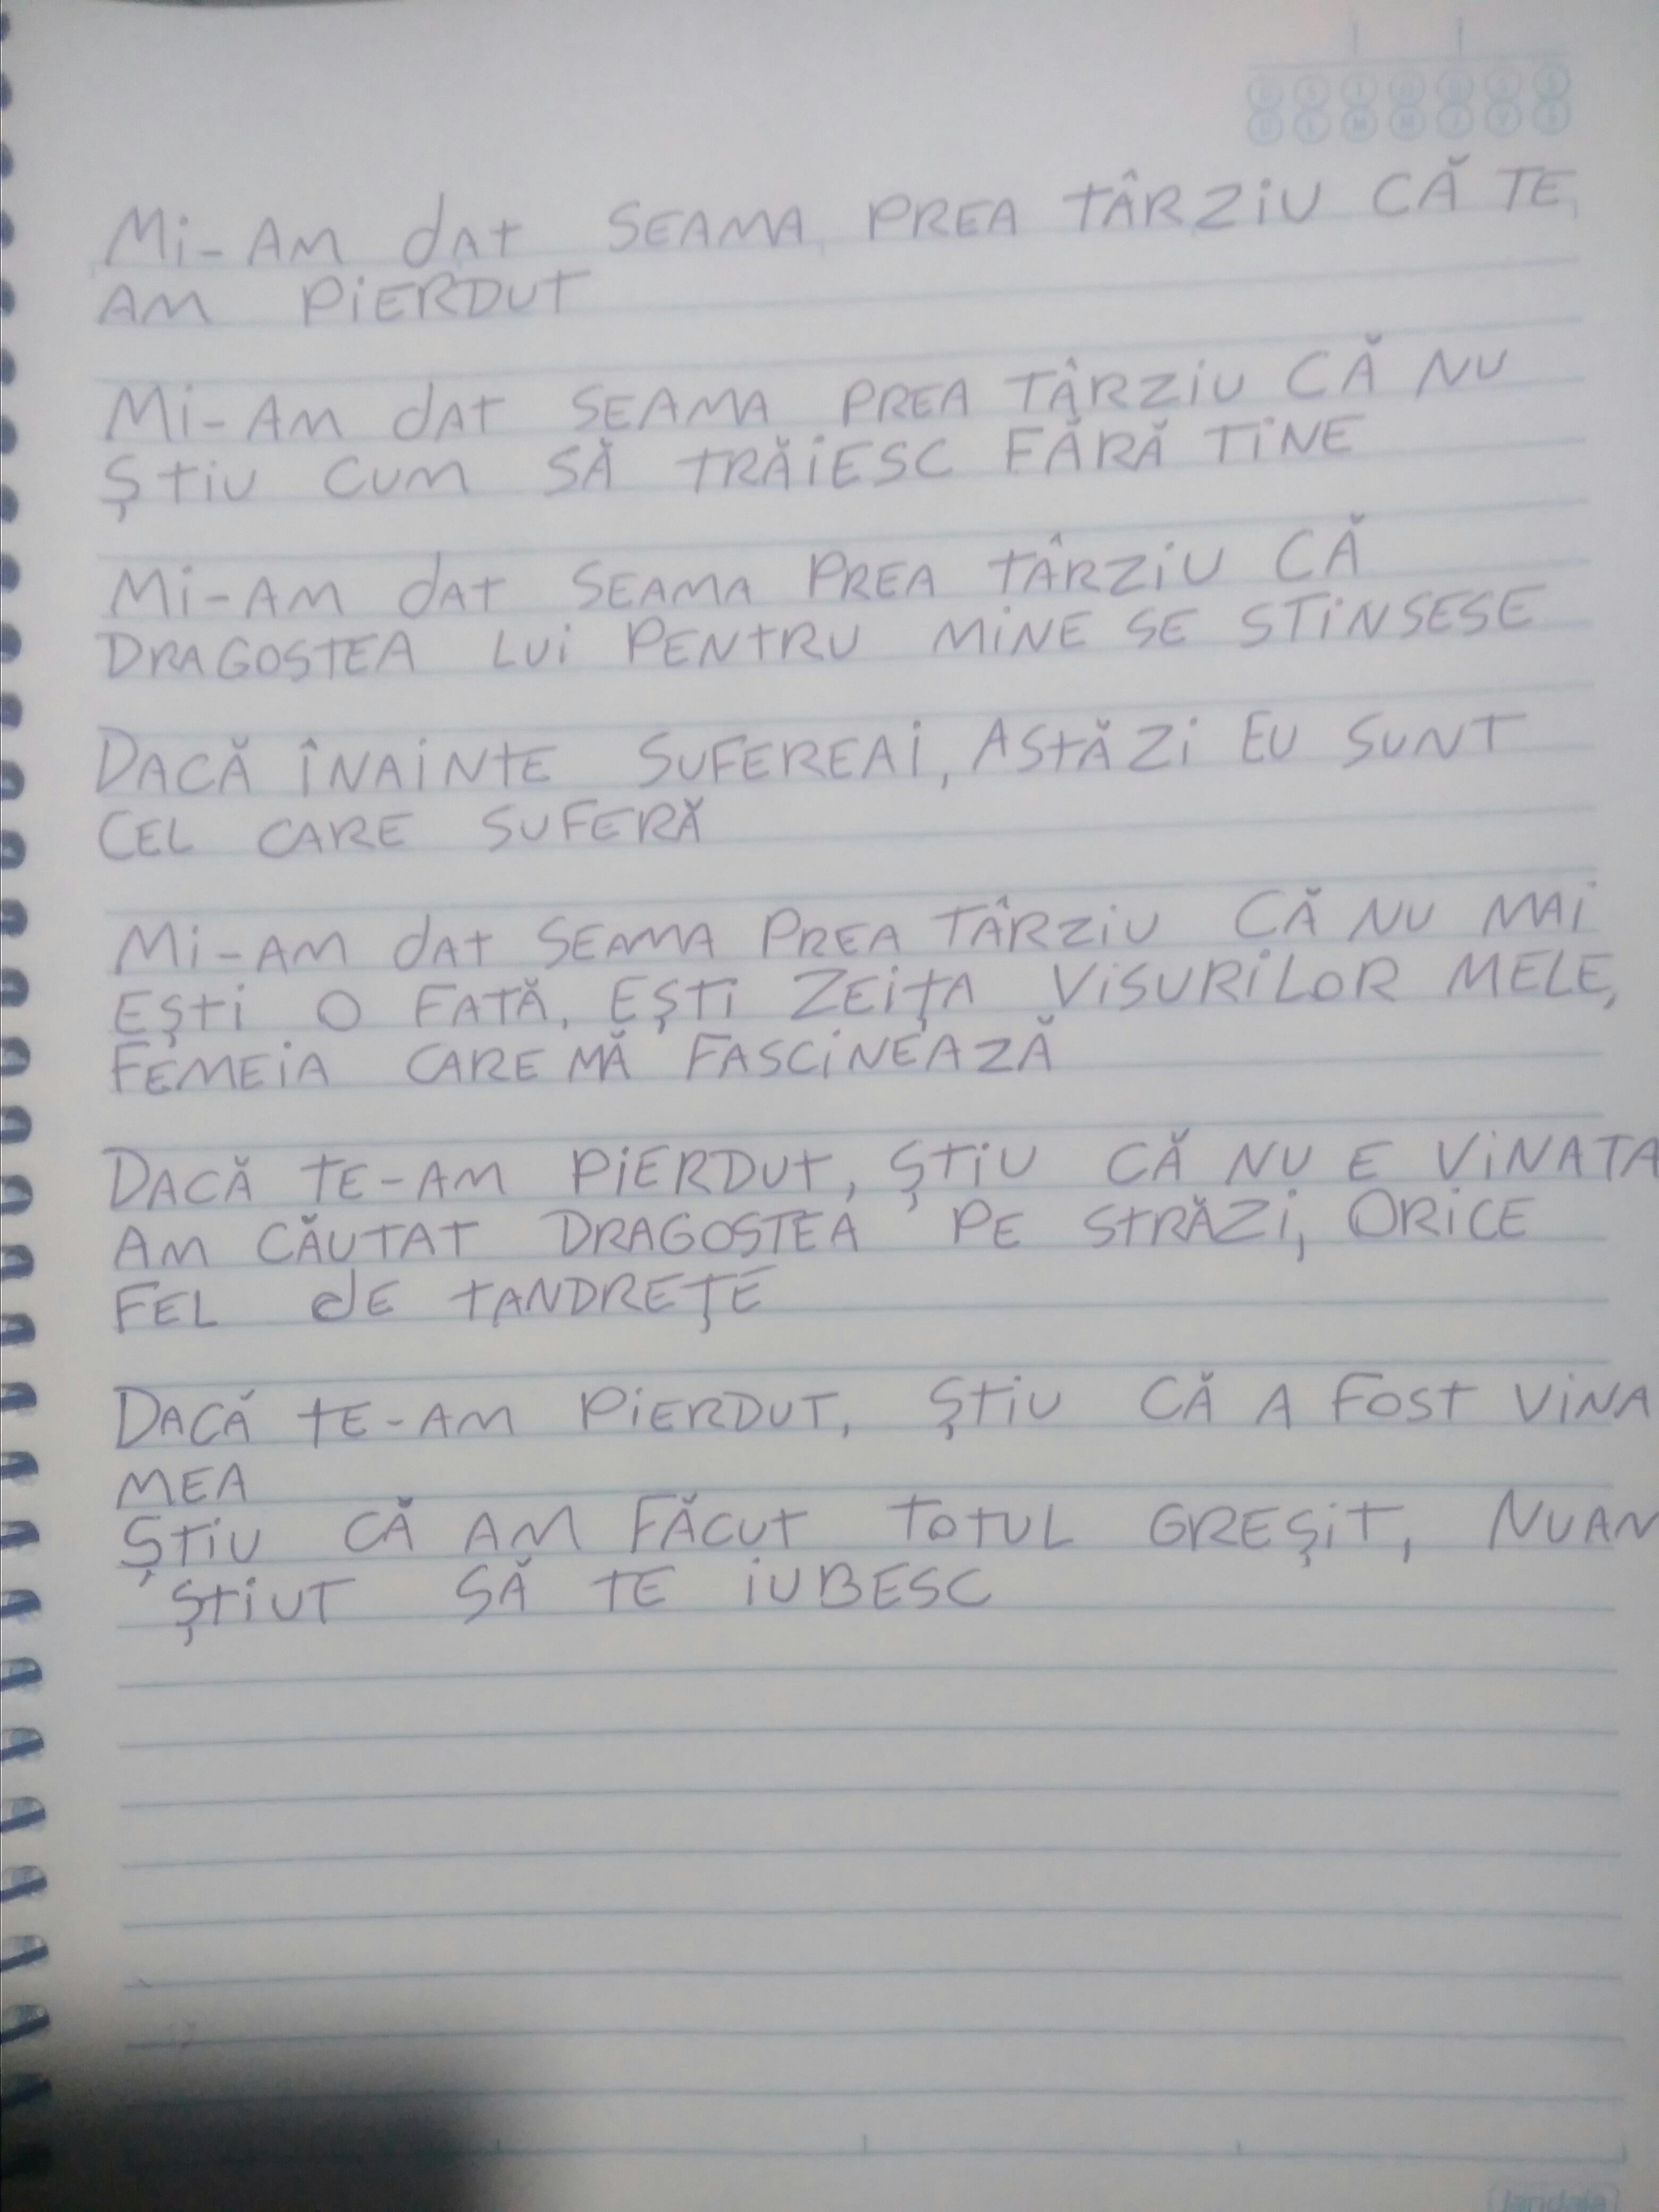 Mi-AM dAt SEAMA PREA TÂRZiU CĂ TE
AM PiERDUT
Mi-AM dAt SEAMA PREA TÂRZiU CĂ NU
ȘtiU CUM SĂ TRĂiESC FĂRĂ TiNE
Mi-AM dAt SEAMA PREA TÂRZiU CĂ
DRAGOSTEA LUi PENTRU MiNE SE STiNSESE
DACĂ ÎNAiNTE SUFEREAi, ASTĂZi EU SUNT
CEL CARE SUFERĂ
Mi-AM dAt SEAMA PREA TÂRZiU CĂ NU MAi
EȘti O FATĂ, EȘTi ZEiȚA ViSURiLOR MELE,
FEMEiA CARE MĂ FASCiNEAZĂ
DACĂ TE-AM PiERDUT, ȘTiU CĂ NU E ViNATA
AM CĂUTAT DRAGOSTEA PE STRĂZi, ORiCE
FEL dE TANDREȚE
DACĂ TE-AM PiERDUT, ȘTiU CĂ A FOST ViNA
MEA
ȘTiU CĂ AM FĂCUT TOTUL GREȘiT, NUAM
ȘTiUT SĂ TE iUBESC